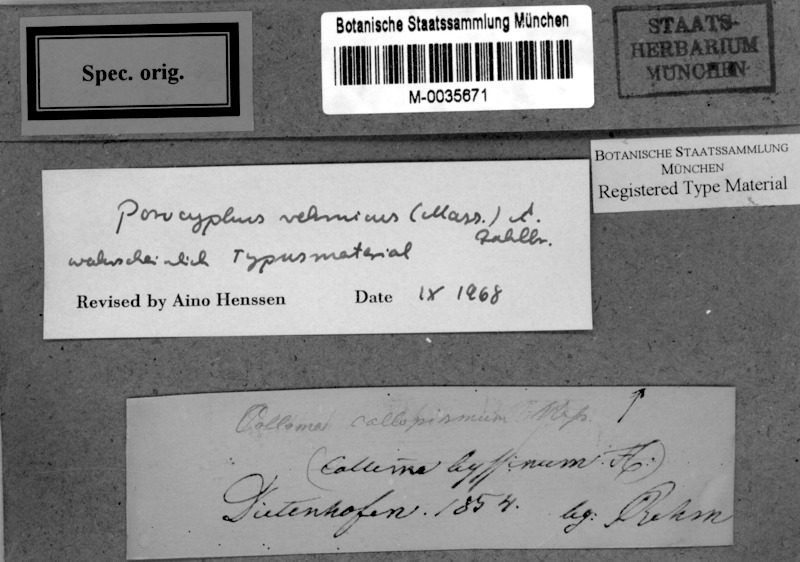 Spec. orig.
Botanische Staatssammlung München
M-0035671
STAATS-
HERBARIUM
MÜNCHEN
BOTANISCHE STAATSSAMMLUNG
MÜNCHEN
Registered Type Material
Porocyphus rehmicus (Mass.) A.
Zahlbr.
wahrscheinlich Typusmaterial
Revised by Aino Henssen Date IX 1968
Collema callopismum Mass.
(Collema byssinum H.)
Dietenhofen. 1854. lg. Rehm